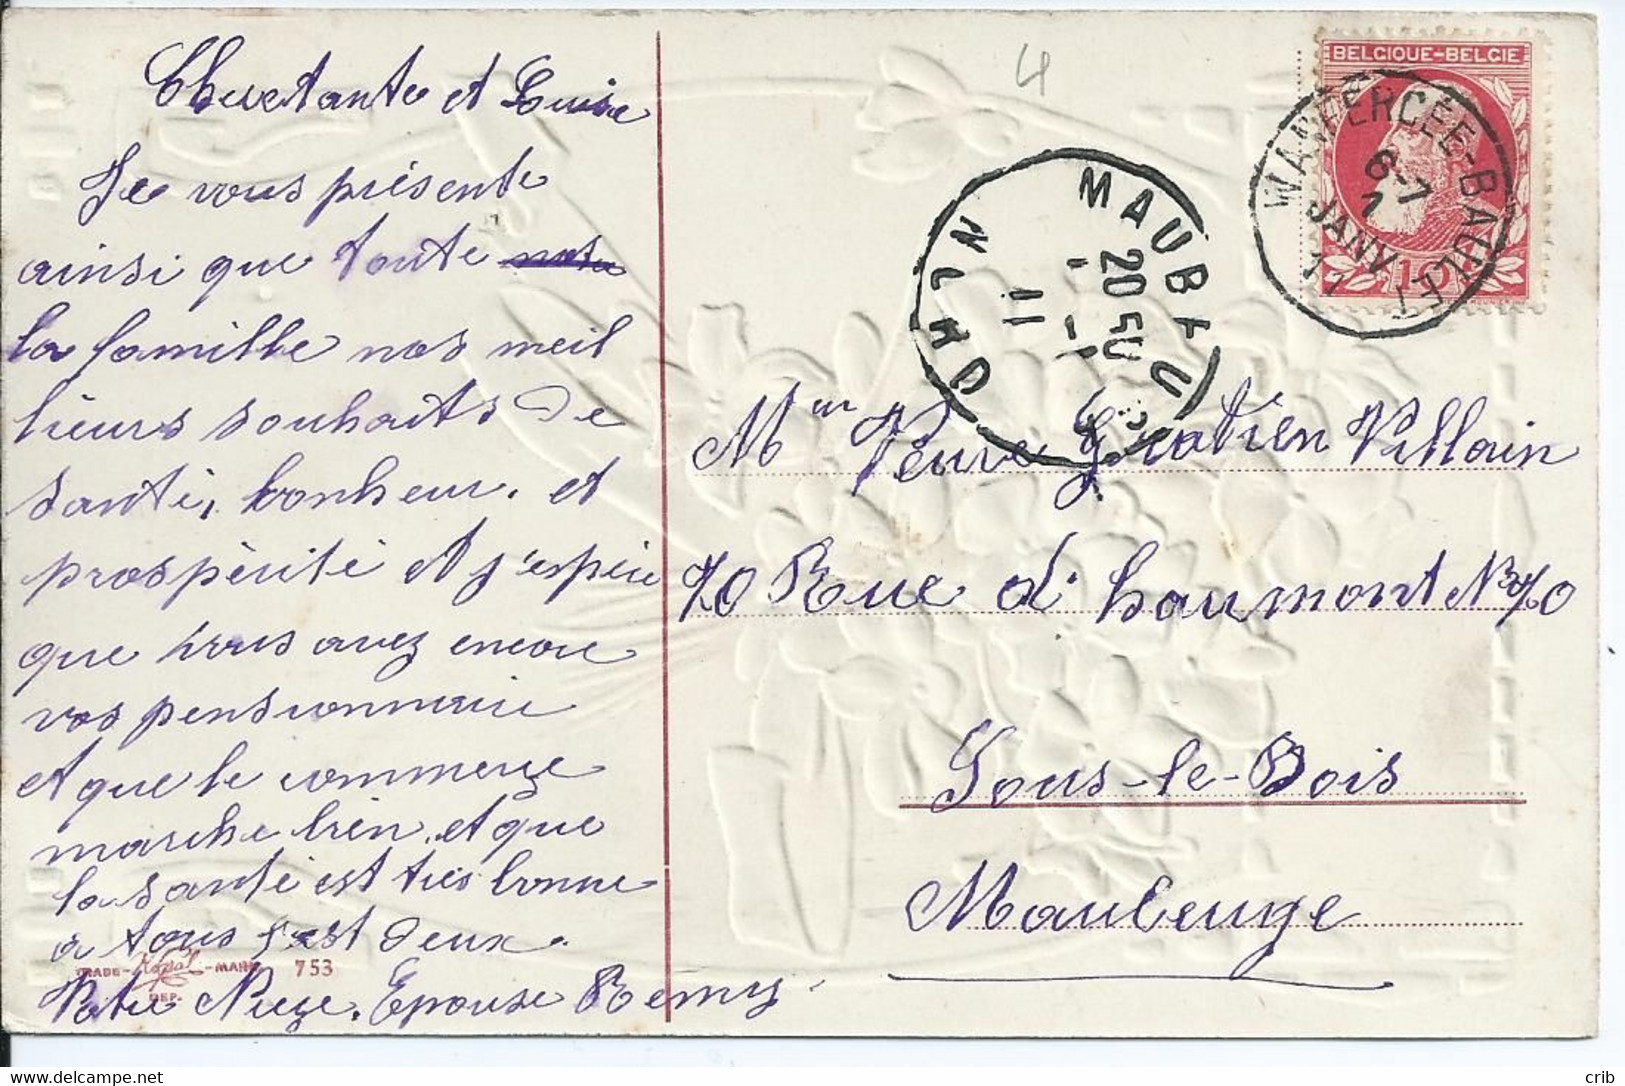 4
BELGIQUE-BELGIE
10
WANFERCÉE-BAULET
6-7
JANV
11
MAUBEUGE
11
NORD
Cher tante et Louise
Je vous présente
ainsi que toute
la famille nos meil
lieurs souhaits de
santé, bonheur. et
prospérité et j'espère
que vous avez encore
vos pensionnaire
et que le commerce
marche bien, et que
la santé est très bonne
à tous deux.
Votre Nieze. Epouse Remy
TRADE- -MARK 753
DEP.
Mme Veuve Gratien Villain
70 Rue d'haumont No 70
Sous-le-Bois
Maubeuge
crib